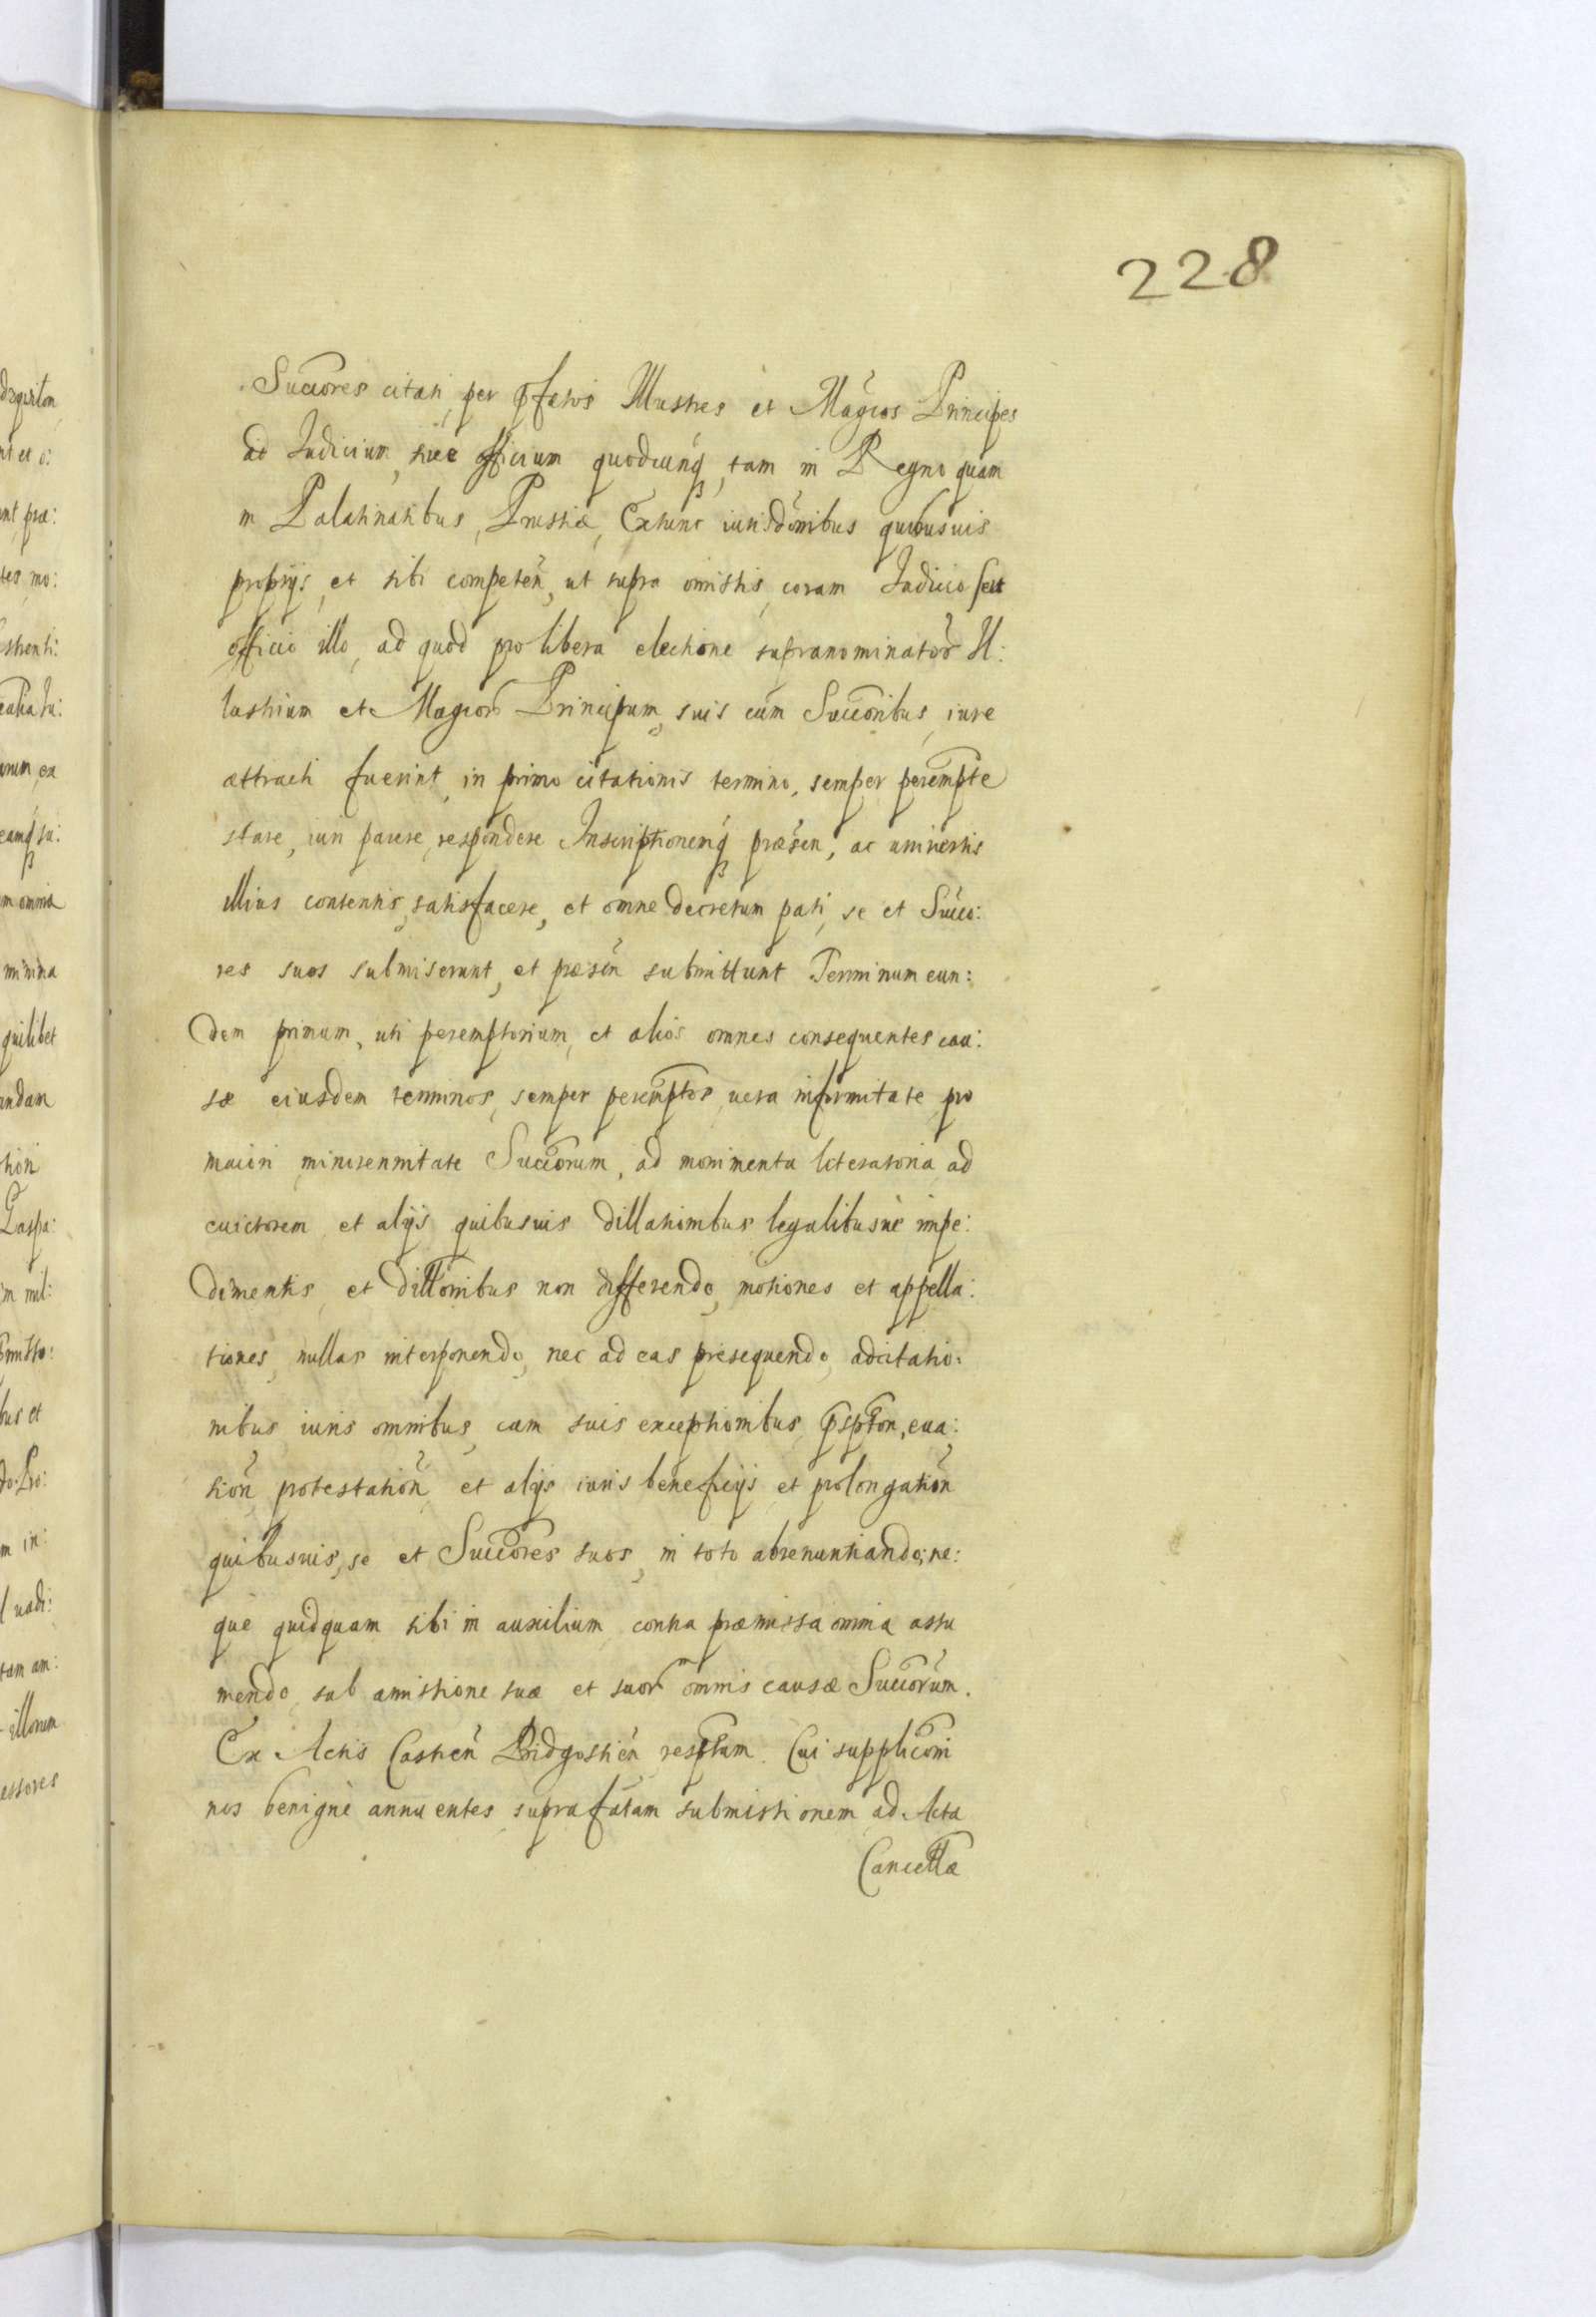 228
Succores citati, per pfatos Illustres et Magcos Principes
ad Iudicium, siue officium quodcunq, tam in Regno quam
in Palatinatibus, Prussiæ, Extunc iurisdonibus quibusuis
proprijs, et sibi competen, ut supra omissis, coram Iudicio seu
officio illo, ad quod pro libera electione supranominator Il:
lustrium et Magcor Principum, suis cum Succoribus, iure
attracti fuerint, in primo citationis termino, semper perempte
stare, iuri parere, respondere Inscriptionemq præsen, ac universis
illius contentis, satisfacere, et omne decretum pati, se et Succo:
res suos submiserunt, et præsen submittunt Terminum eun:
dem primum, uti peremptorium, et alios omnes consequentes cau:
sæ eiusdem terminos, semper peremptos, uera infirmitate, pro
maiori, minorennitate Succorum, ad monimenta literatoria, ad
euictorem et alijs quibusuis dillationibus legalibusuè impe:
dimentis, et dillonibus non differendo, motiones et appella:
tiones, nullas interponendo, nec ad eas prosequendo, adcitatio:
nibus iuris omnibus, cum suis exceptionibus, pspton, eua:
sion protestation et alijs iuris beneficijs et prolongation
quibusuis, se et Succores suos, in toto abrenuntiando, ne:
què quidquam sibi in auxilium contra præmissa omnia assu
mendo, sub amissione suæ et suor omnis causæ Succorum.
Ex Actis Castren Bidgostien resptum. Cui suppliconi
nos benignè annuentes, suprafatam submissionem ad Acta
Cancellæ